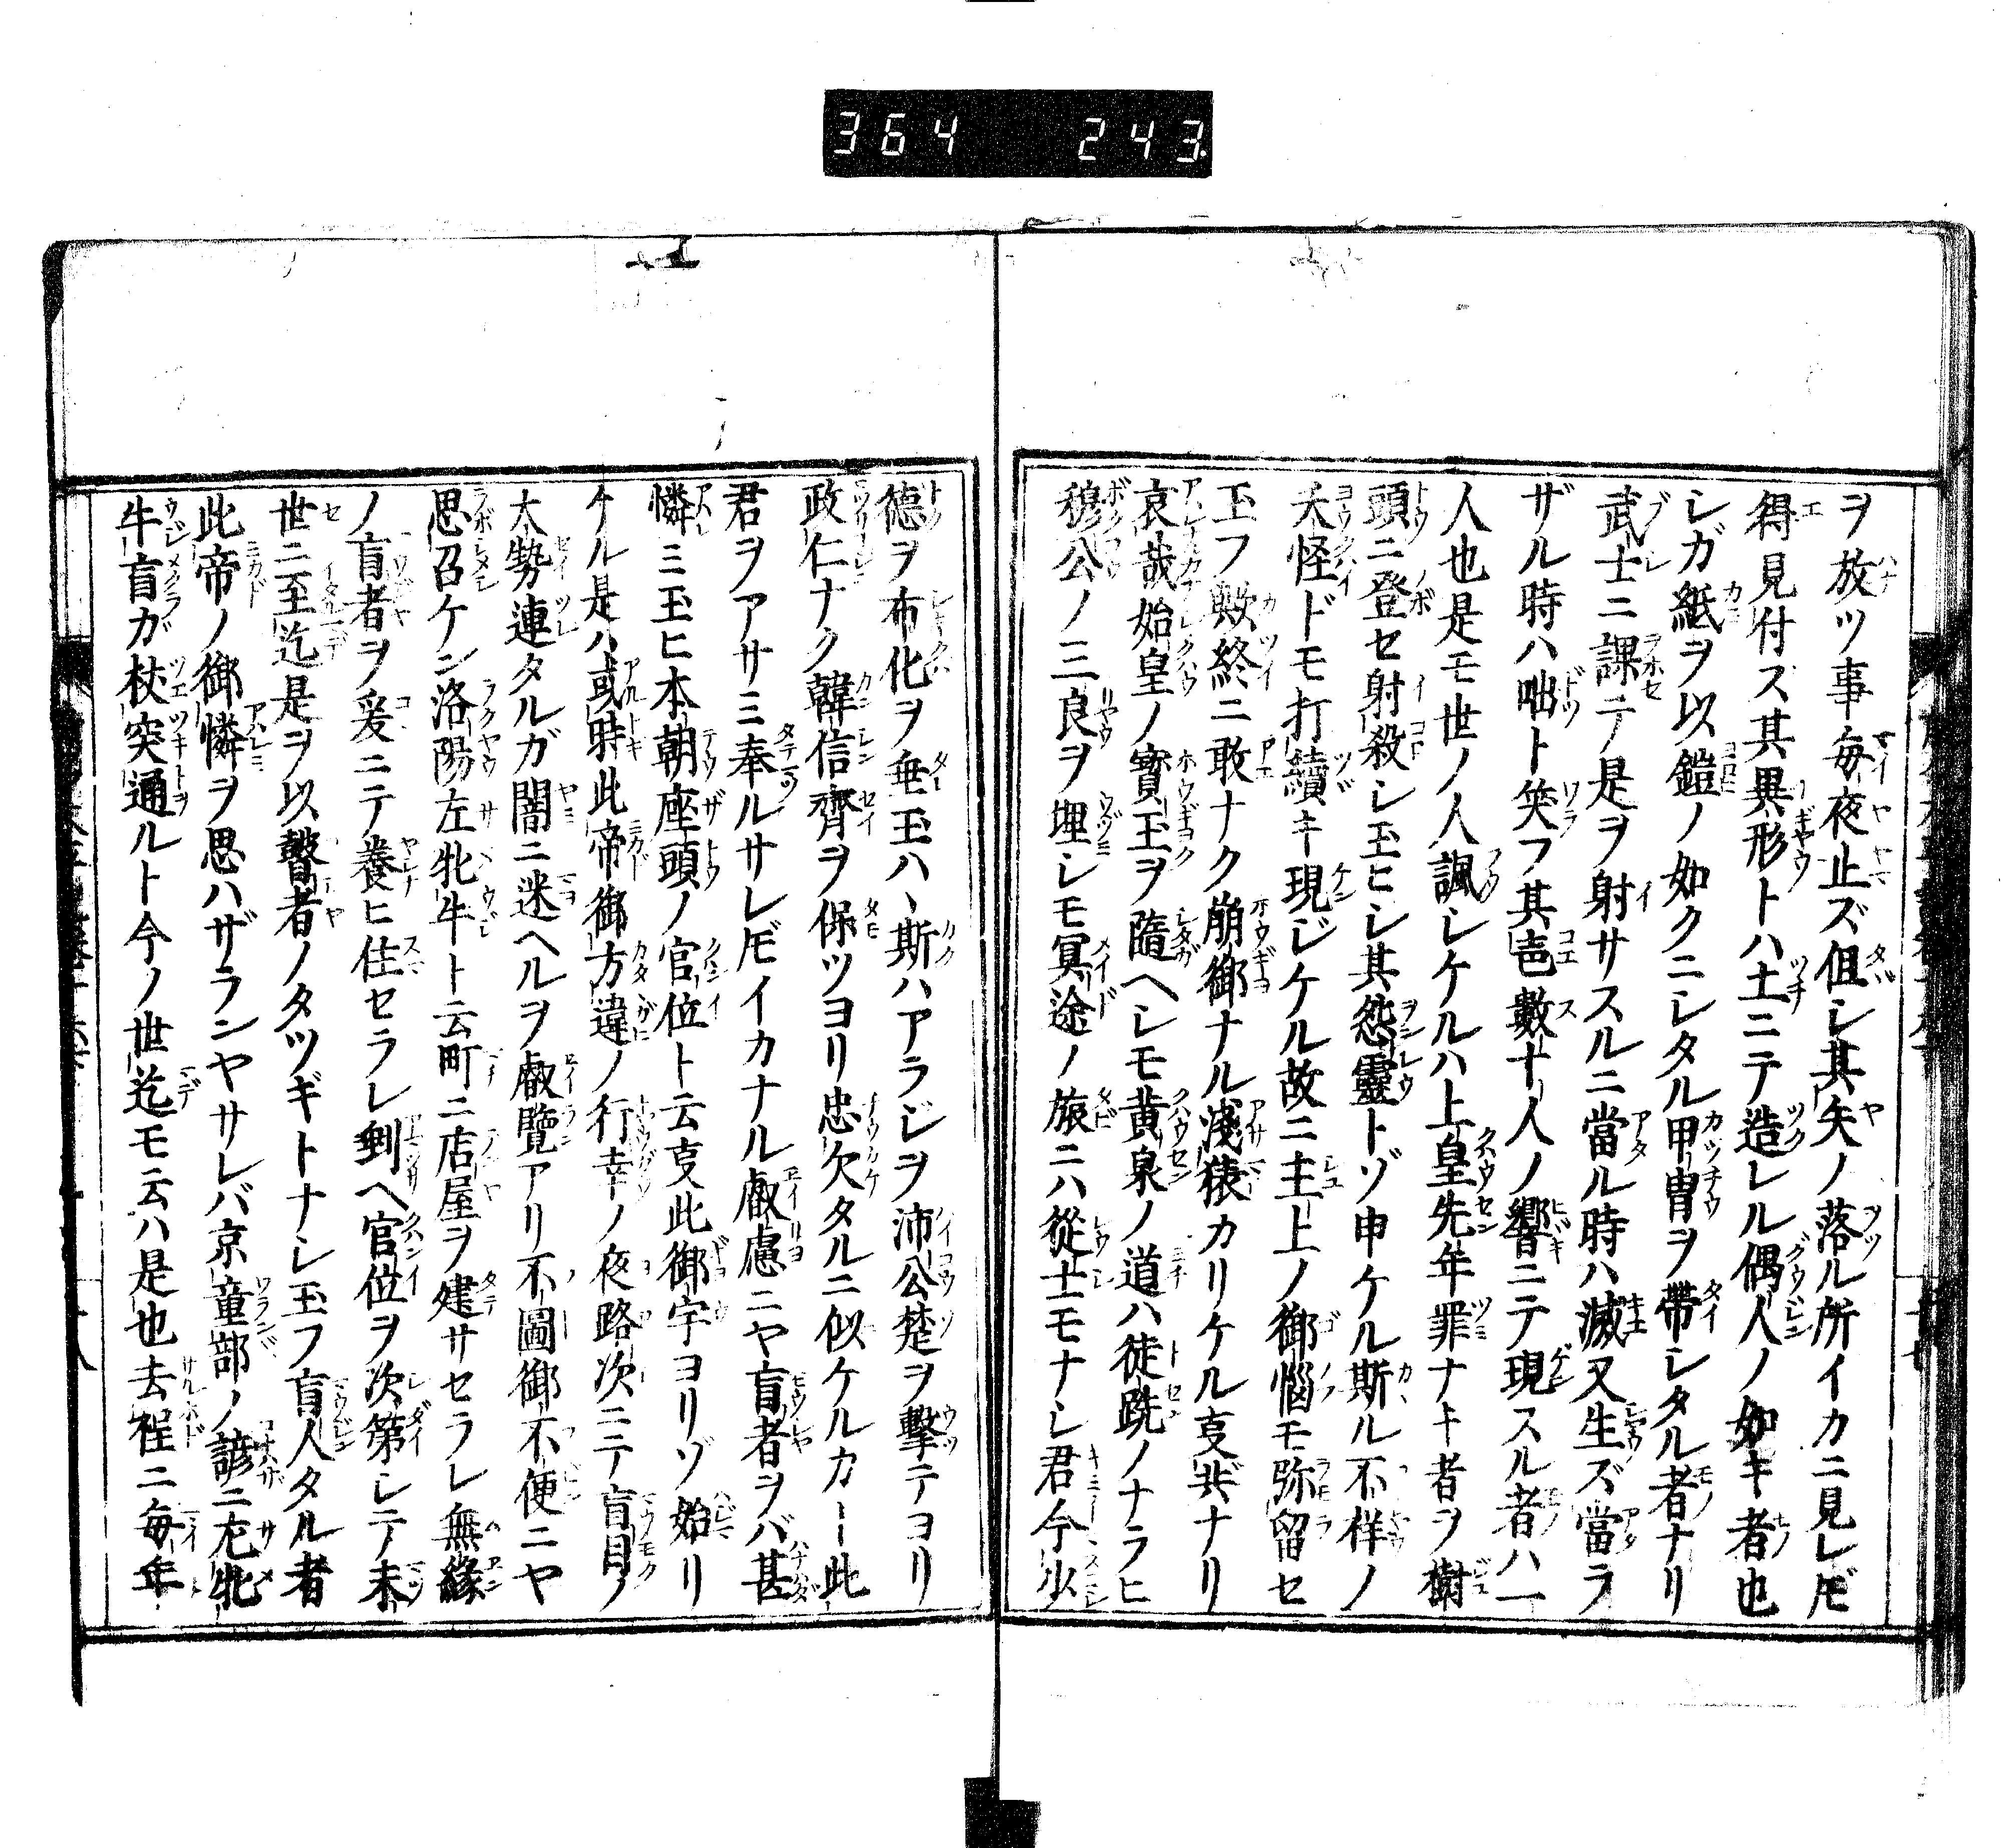 364 243
ヲ放ツ事毎夜止ズ但シ其矢ノ落ル所イカニ見レ𪜈
得見付ス其異形トハ土ニテ造レル偶人ノ如キ者也
シガ紙ヲ以鎧ノ如クニシタル甲冑ヲ帶シタル者ナリ
武士ニ課テ是ヲ射サスルニ當ル時ハ滅又生ズ當ラ
ザル時ハ咄ト笑フ其声數十人ノ響ニテ現スル者ハ一
人也是モ世ノ人諷シケルハ上皇先年罪ナキ者ヲ樹
頭ニ登セ射殺シ玉ヒシ其怨靈トゾ申ケル斯ル不祥ノ
夭怪ドモ打續キ現ジケル故ニ主上ノ御惱モ弥留セ
玉フ歟終ニ敢ナク崩御ナル淺猿カリケル㕝共ナリ
哀哉始皇ノ寳玉ヲ隨ヘシモ黄泉ノ道ハ徒跣ノナラヒ
穆公ノ三良ヲ埋シモ冥途ノ旅ニハ從士モナシ君今少
德ヲ布化ヲ垂玉ハヽ斯ハアラジヲ沛公楚ヲ撃テヨリ
政仁ナク韓信齊ヲ保ツヨリ忠欠タルニ似ケルカー此
君ヲアサミ奉ルサレ𪜈イカナル叡慮ニヤ盲者ヲバ甚
憐ミ玉ヒ本朝座頭ノ官位ト云㕝此御宇ヨリゾ始リ
ケル是ハ或時此帝御方違ノ行幸ノ夜路次ニテ盲目ノ
大勢連タルガ闇ニ迷ヘルヲ叡覽アリ不圖御不便ニヤ
思召ケン洛陽左牝牛ト云町ニ店屋ヲ建サセラレ無緣
ノ盲者ヲ爰ニテ養ヒ住セラレ剩ヘ官位ヲ次第シテ末
世ニ至迄是ヲ以瞽者ノタツギトナシ玉フ盲人タル者
此帝ノ御憐ヲ思ハザランヤサレバ京童部ノ諺ニ左牝
牛盲ガ杖突通ルト今ノ世迄モ云ハ是也去程ニ毎年